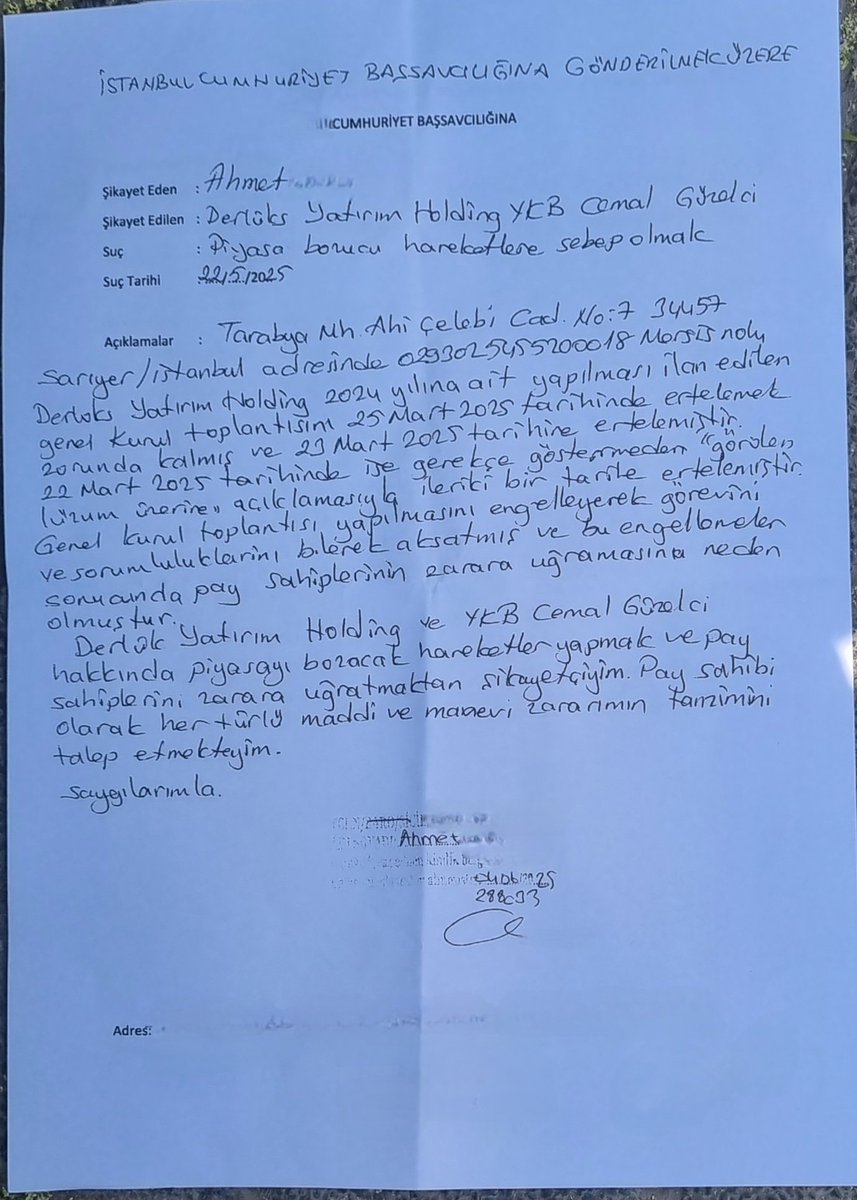 İSTANBUL CUMHURİYET BAŞSAVCILIĞINA GÖNDERİLMEK ÜZERE
CUMHURİYET BAŞSAVCILIĞINA
Şikayet Eden : Ahmet
Şikayet Edilen : Derlüks Yatırım Holding YKB Cemal Güzelci
Suç : Piyasa bozucu hareketlere sebep olmak
Suç Tarihi : 22/5/2025
Açıklamalar : Tarabya Mh. Ahi Çelebi Cad. No:7 34457
Sarıyer/İstanbul adresinde 0293025455200018 Mersis nolu
Derlüks Yatırım Holding 2024 yılına ait yapılması ilan edilen
genel kurul toplantısını 25 Mart 2025 tarihinde ertelemek
zorunda kalmış ve 23 Mart 2025 tarihine ertelemiştir.
22 Mart 2025 tarihinde ise gerekçe göstermeden "görülen
lüzum üzerine" açıklamasıyla ileriki bir tarihe ertelemiştir.
Genel kurul toplantısı yapılmasını engelleyerek görevini
ve sorumluluklarını bilerek aksatmış ve bu engellemeler
sonucunda pay sahiplerinin zarara uğramasına neden
olmuştur.
Derlük Yatırım Holding ve YKB Cemal Güzelci
hakkında piyasayı bozacak hareketler yapmak ve pay
sahiplerini zarara uğratmaktan şikayetçiyim. Pay sahibi
olarak her türlü maddi ve manevi zararımın tanzimini
talep etmekteyim.
Saygılarımla.
Ahmet
04.06.2025
Adres: